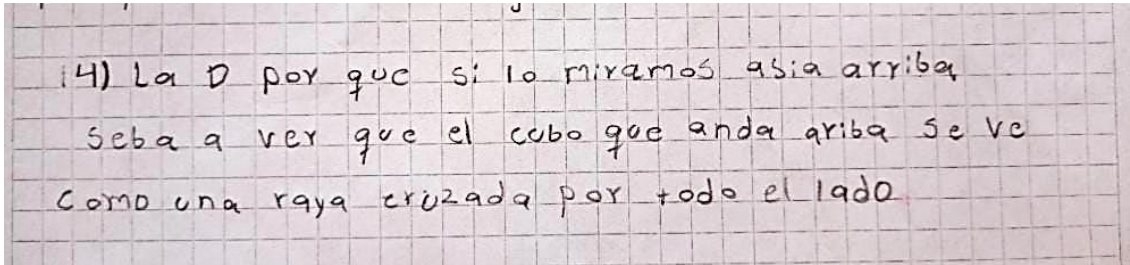 14) La D por que si lo miramos asia arriba
seba a ver que el cubo que anda ariba se ve
como una raya cruzada por todo el lado